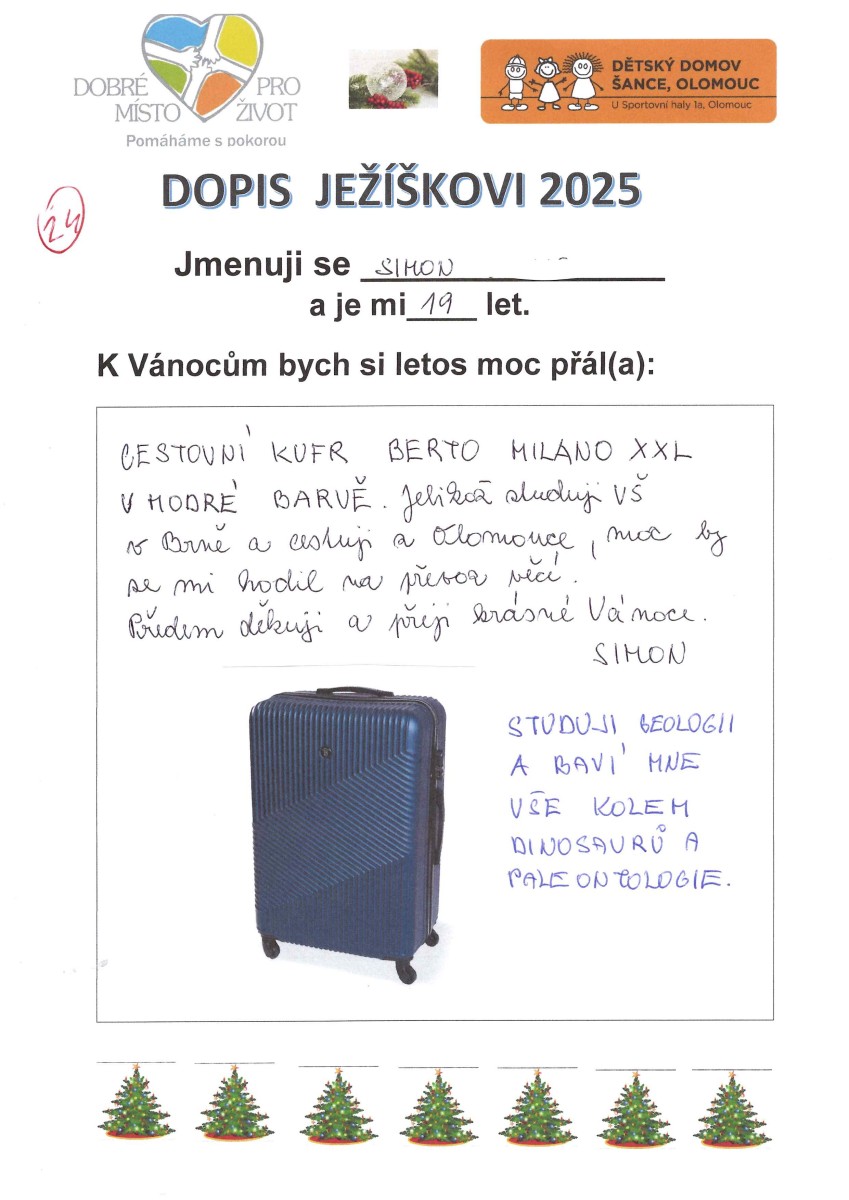 DOBRÉ PRO
MÍSTO ŽIVOT
Pomáháme s pokorou
DĚTSKÝ DOMOV
ŠANCE, OLOMOUC
U Sportovní haly 1a, Olomouc
DOPIS JEŽÍŠKOVI 2025
24
Jmenuji se SIMON
a je mi 19 let.
K Vánocům bych si letos moc přál(a):
CESTOVNÍ KUFR BERTO MILANO XXL
V MODRÉ BARVĚ. Jelikož studuji VŠ
v Brně a cestuji z Olomouce, moc by
se mi hodil na převoz věcí.
Předem děkuji a přeji krásné Vánoce.
SIMON
STUDUJI GEOLOGII
A BAVÍ MNE
VŠE KOLEM
DINOSAURŮ A
PALEONTOLOGIE.